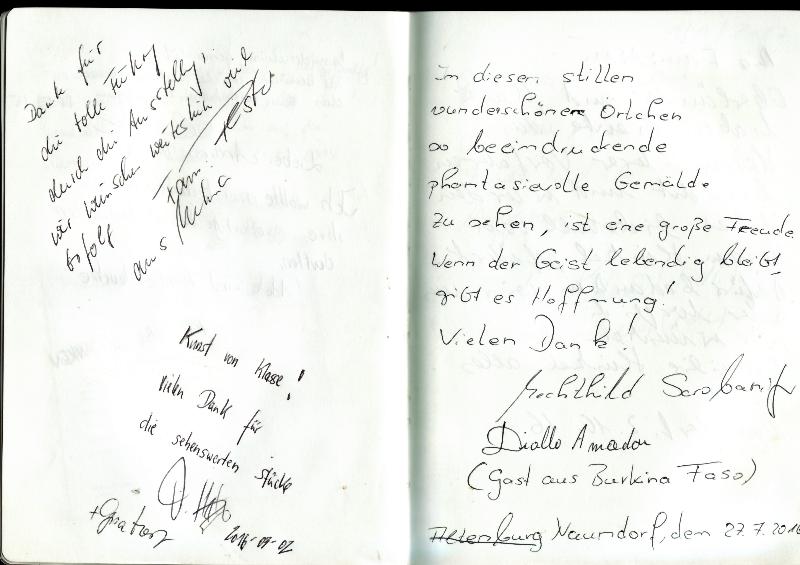 Danke für
die tolle Führung
durch die Ausstellung!
wir wünschen weiterhin viel
Erfolg Fam.
aus
Kunst von Klasse!
vielen Dank für
die sehenswerten Stücke
2016-07-02
In diesem stillen
wunderschönen Örtchen
so beeindruckende
phantasievolle Gemälde
zu sehen, ist eine große Freude.
Wenn der Geist lebendig bleibt,
gibt es Hoffnung!
Vielen Dank!
Mechthild
Diallo Amadou
(Gast aus Burkina Faso)
Altenburg Naundorf, dem 27.7.2016